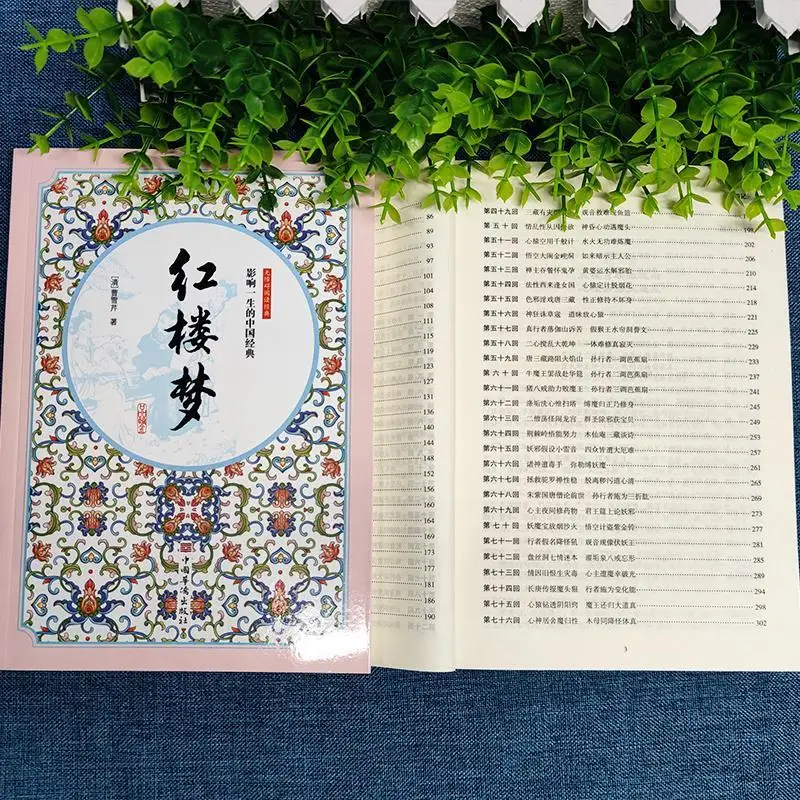 无障碍阅读经典
影响一生的中国经典
红楼梦
[清]曹雪芹 著
中国华侨出版社
86
93
94
97
101
104
108
111
112
119
123
127
131
133
137
140
144
148
152
156
159
163
167
170
173
177
181
186
190
第四十九回 三藏有灾 观音救难现鱼篮
第五十回 情乱性从因 欲 神昏心动遇魔头 198
第五十一回 心猿空用千般计 水火无功难炼魔 202
第五十二回 悟空大闹金𫒹洞 如来暗示主人公 206
第五十三回 禅主吞餐怀鬼孕 黄婆运水解邪胎 210
第五十四回 法性西来逢女国 心猿定计脱烟花 214
第五十五回 色邪淫戏唐三藏 性正修持不坏身 218
第五十六回 神狂诛草寇 道昧放心猿 221
第五十七回 真行者落伽山诉苦 假猴王水帘洞誊文 225
第五十八回 二心搅乱大乾坤 一体难修真寂灭 229
第五十九回 唐三藏路阻火焰山 孙行者一调芭蕉扇 233
第六十回 牛魔王罢战赴华筵 孙行者二调芭蕉扇 237
第六十一回 猪八戒助力败魔王 孙行者三调芭蕉扇 241
第六十二回 涤垢洗心惟扫塔 缚魔归正乃修身 245
第六十三回 二僧荡怪闹龙宫 群圣除邪获宝贝 249
第六十四回 荆棘岭悟能努力 木仙庵三藏谈诗 253
第六十五回 妖邪假设小雷音 四众皆遭大厄难 257
第六十六回 诸神遭毒手 弥勒缚妖魔 261
第六十七回 拯救驼罗禅性稳 脱离秽污道心清 265
第六十八回 朱紫国唐僧论前世 孙行者施为三折肱 269
第六十九回 心主夜间修药物 君王筵上论妖邪 273
第七十回 妖魔宝放烟沙火 悟空计盗紫金铃 277
第七十一回 行者假名降怪犼 观音现像伏妖王 281
第七十二回 盘丝洞七情迷本 濯垢泉八戒忘形 286
第七十三回 情因旧恨生灾毒 心主遭魔幸破光 290
第七十四回 长庚传报魔头狠 行者施为变化能 294
第七十五回 心猿钻透阴阳窍 魔王还归大道真 298
第七十六回 心神居舍魔归性 木母同降怪体真 302
3